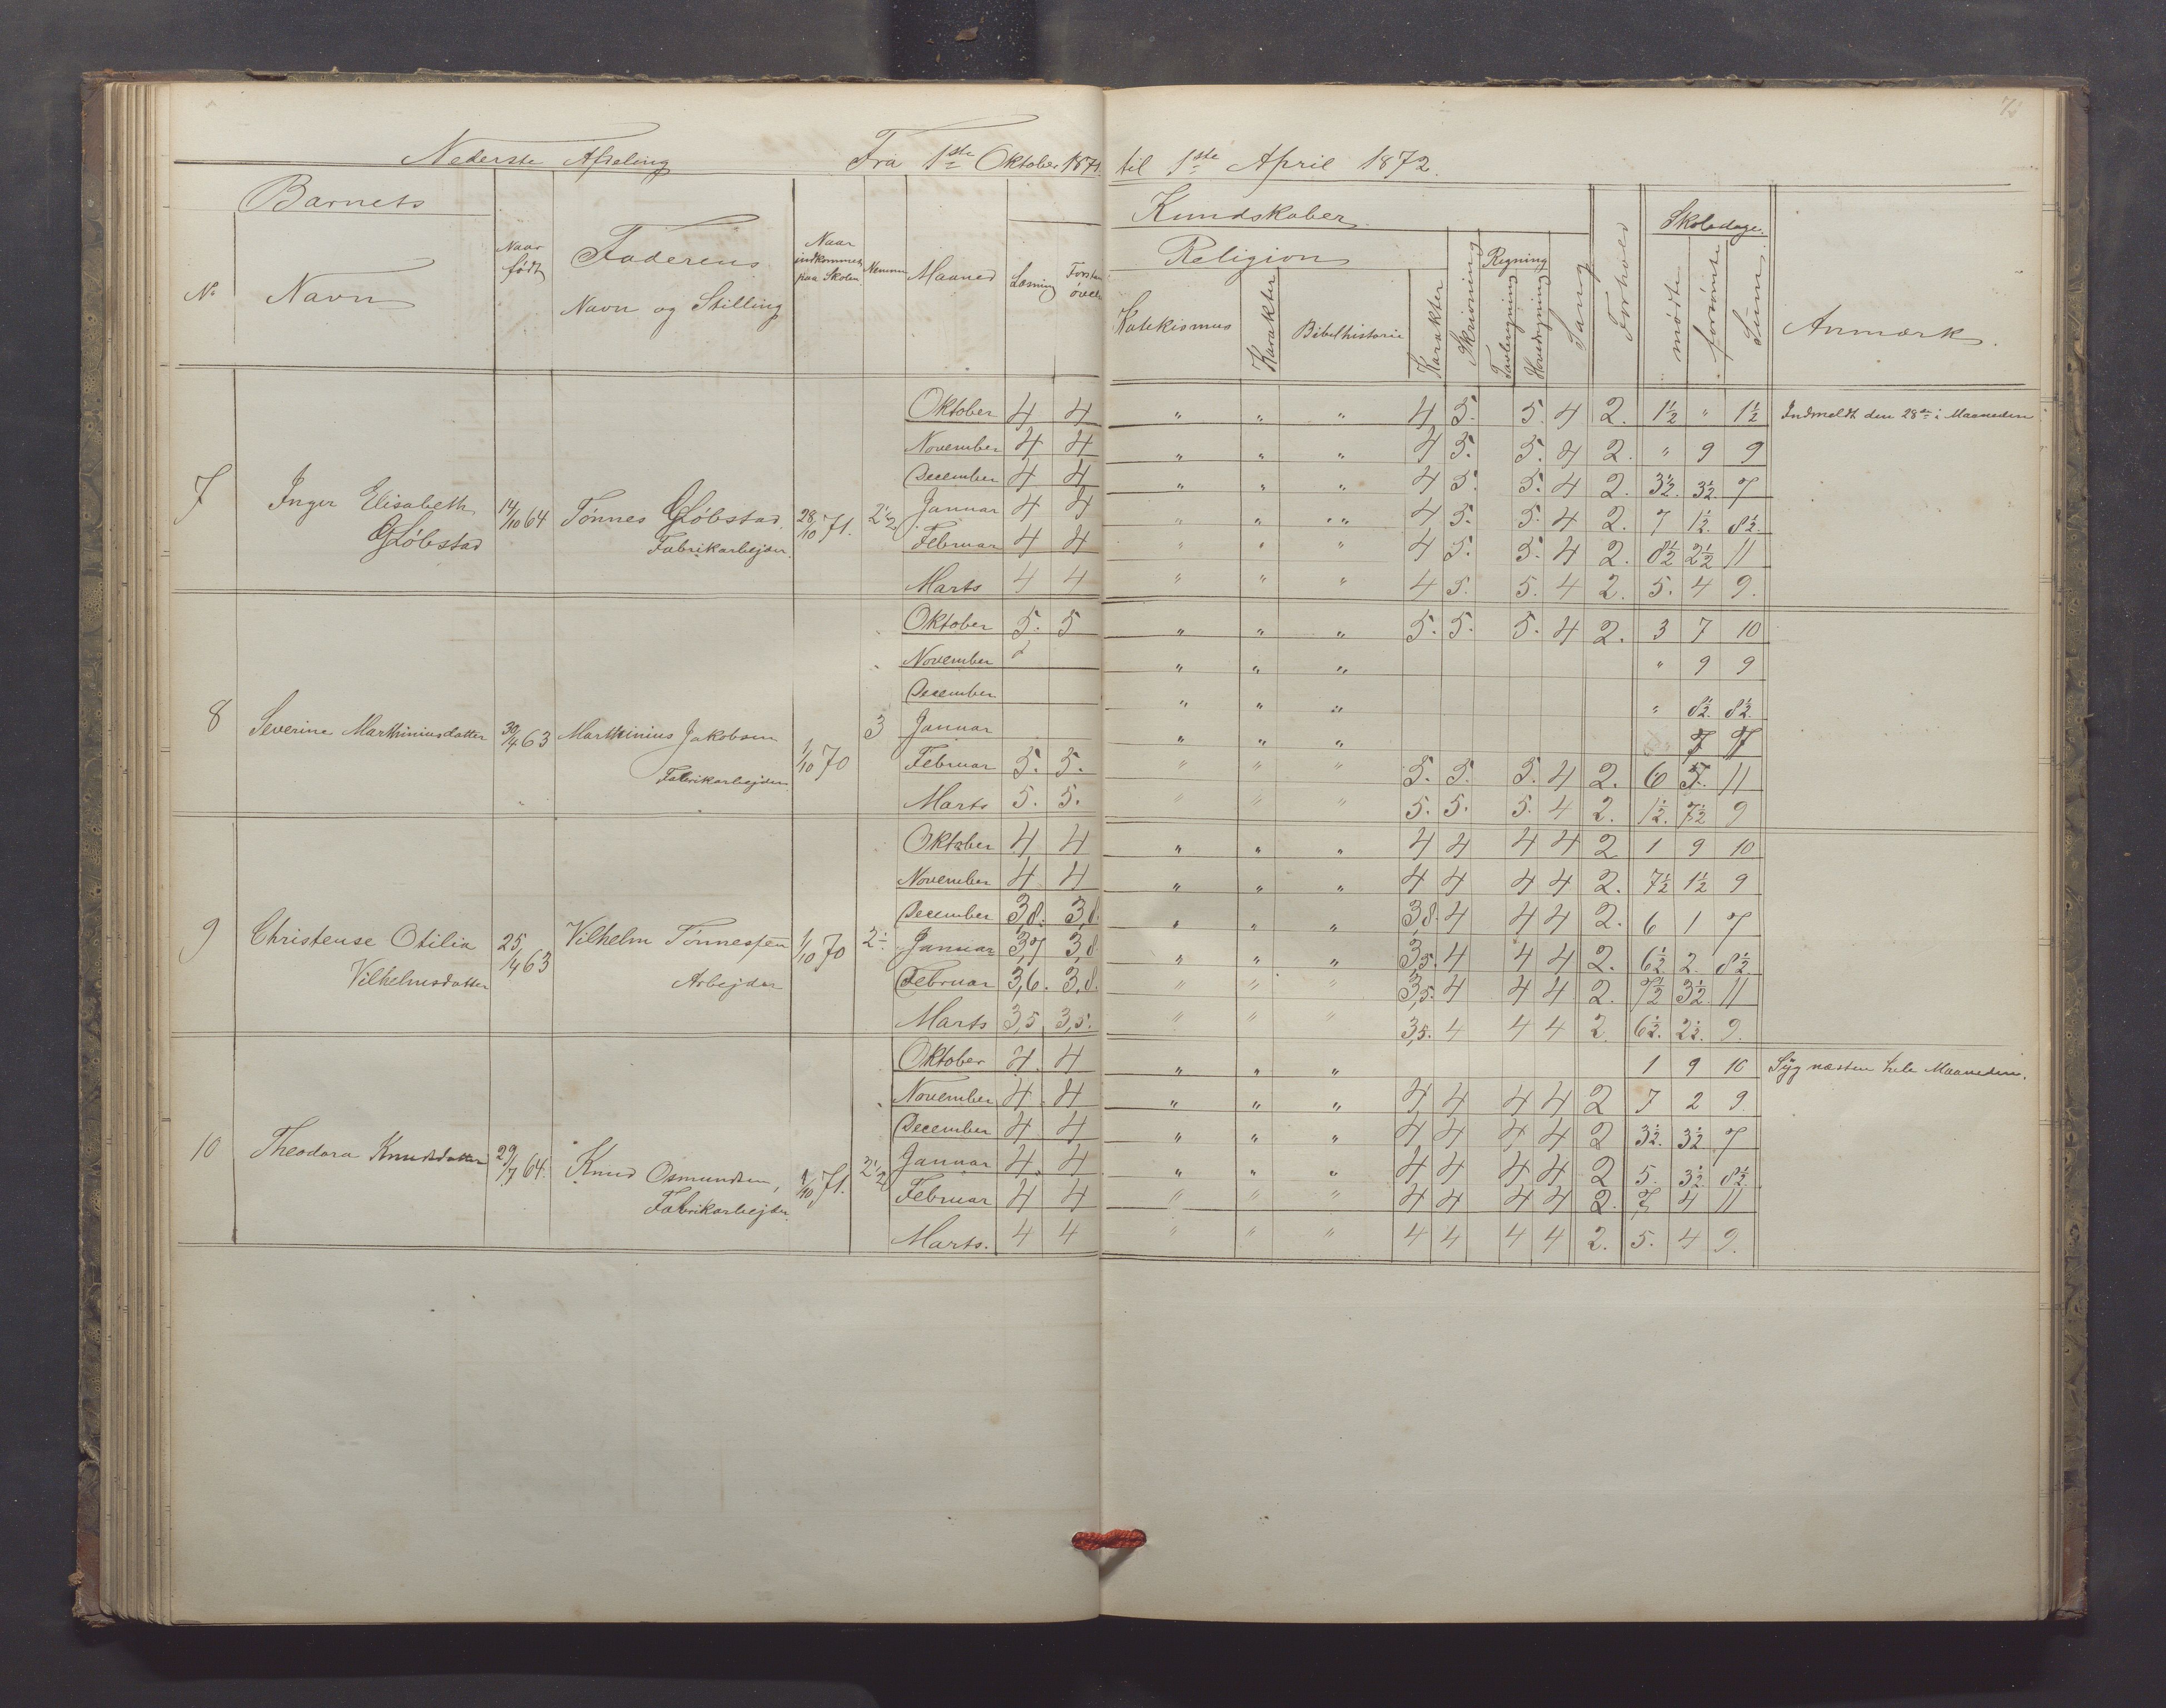 Nederste Afdeling Fra 1ste Oktober 1871. til 1ste April 1872.
Barnets Kundskaber Skoledage.
N. Navn Naar født Faderens Navn og Stilling Naar indkommen paa Skolen Nemme Maaned Læsning Religion Katekismus Karakter Bibelhistorie Karakter Skrivning Regning Tavleregning Hovedregning Sang Forhold mødte forsømte Sum Anmærk.
Oktober 4 4 " " " 4 5. 5. 4 2. 1½ " 1½ Indmeldt den 28de i Maaneden
November 4 4 " " " 4 5. 5. 4 2. " 9 9
December 4 4 " " " 4 5. 5. 4 2. 3½. 3½ 7
7 Inger Elisabeth 14/10 64 Tønnes Gløbstad 28/10 71. 2½ Januar 4 4 " " " 4 5. 5. 4 2. 7 1½. 8½.
Gløbstad Fabrikarbejder. Februar 4 4 " " " 4 5. 5. 4 2. 8½ 2½ 11
Marts 4 4 " " " 4 5. 5. 4 2. 5. 4 9.
Oktober 5. 5 " " " 5. 5. 5. 4 2. 3 7 10
November " " " " 9 9
December " " " " 8½. 8½.
8 Severine Marthiniusdatter 30/4 63 Marthinius Jakobsen 1/10 70 3 Januar " " " 7 7
Fabrikarbejder Februar 5. 5. " " " 5. 5. 5. 4 2. 6 5. 11
Marts 5. 5. " " " 5. 5. 5. 4 2. 1½. 7½ 9
Oktober 4 4 " " " 4 4 4 4 2 1 9 10
November 4 4 " " " 4 4 4 4 2. 7½ 1½ 9
December 3,8. 3,8. " " " 3,8. 4 4 4 2. 6 1 7
9 Christense Otilia 25/4 63 Vilhelm Tønnessen 1/10 70 2÷ Januar 3,7 3,8 " " " 3,5. 4 4 4 2. 6½ 2. 8½.
Vilhelmsdatter Arbejder Februar 3,6. 3,8. " " " 3,5. 4 4 4 2. 7½ 3½ 11
Marts 3,5 3,5. " " " 3,5. 4 4 4 2. 6½. 2½. 9.
Oktober 4. 4 " " " 1 9 10 Syg næsten hele Maaneden.
November 4 4 " " " 4 4 4 4 2 7 2 9.
December 4 4 " " " 4 4 4 4 2 3½. 3½ 7
10 Theodora Knudsdatter 29/7 64. Knud Osmundsen, 1/10 71. 2½ Januar 4. 4 " " " 4 4 4 4 2 5. 3½. 8½.
Fabrikarbejder. Februar 4 4 " " " 4 4 4 4 2. 7 4 11
Marts. 4 4 " " " 4 4 4 4 2. 5. 4 9.